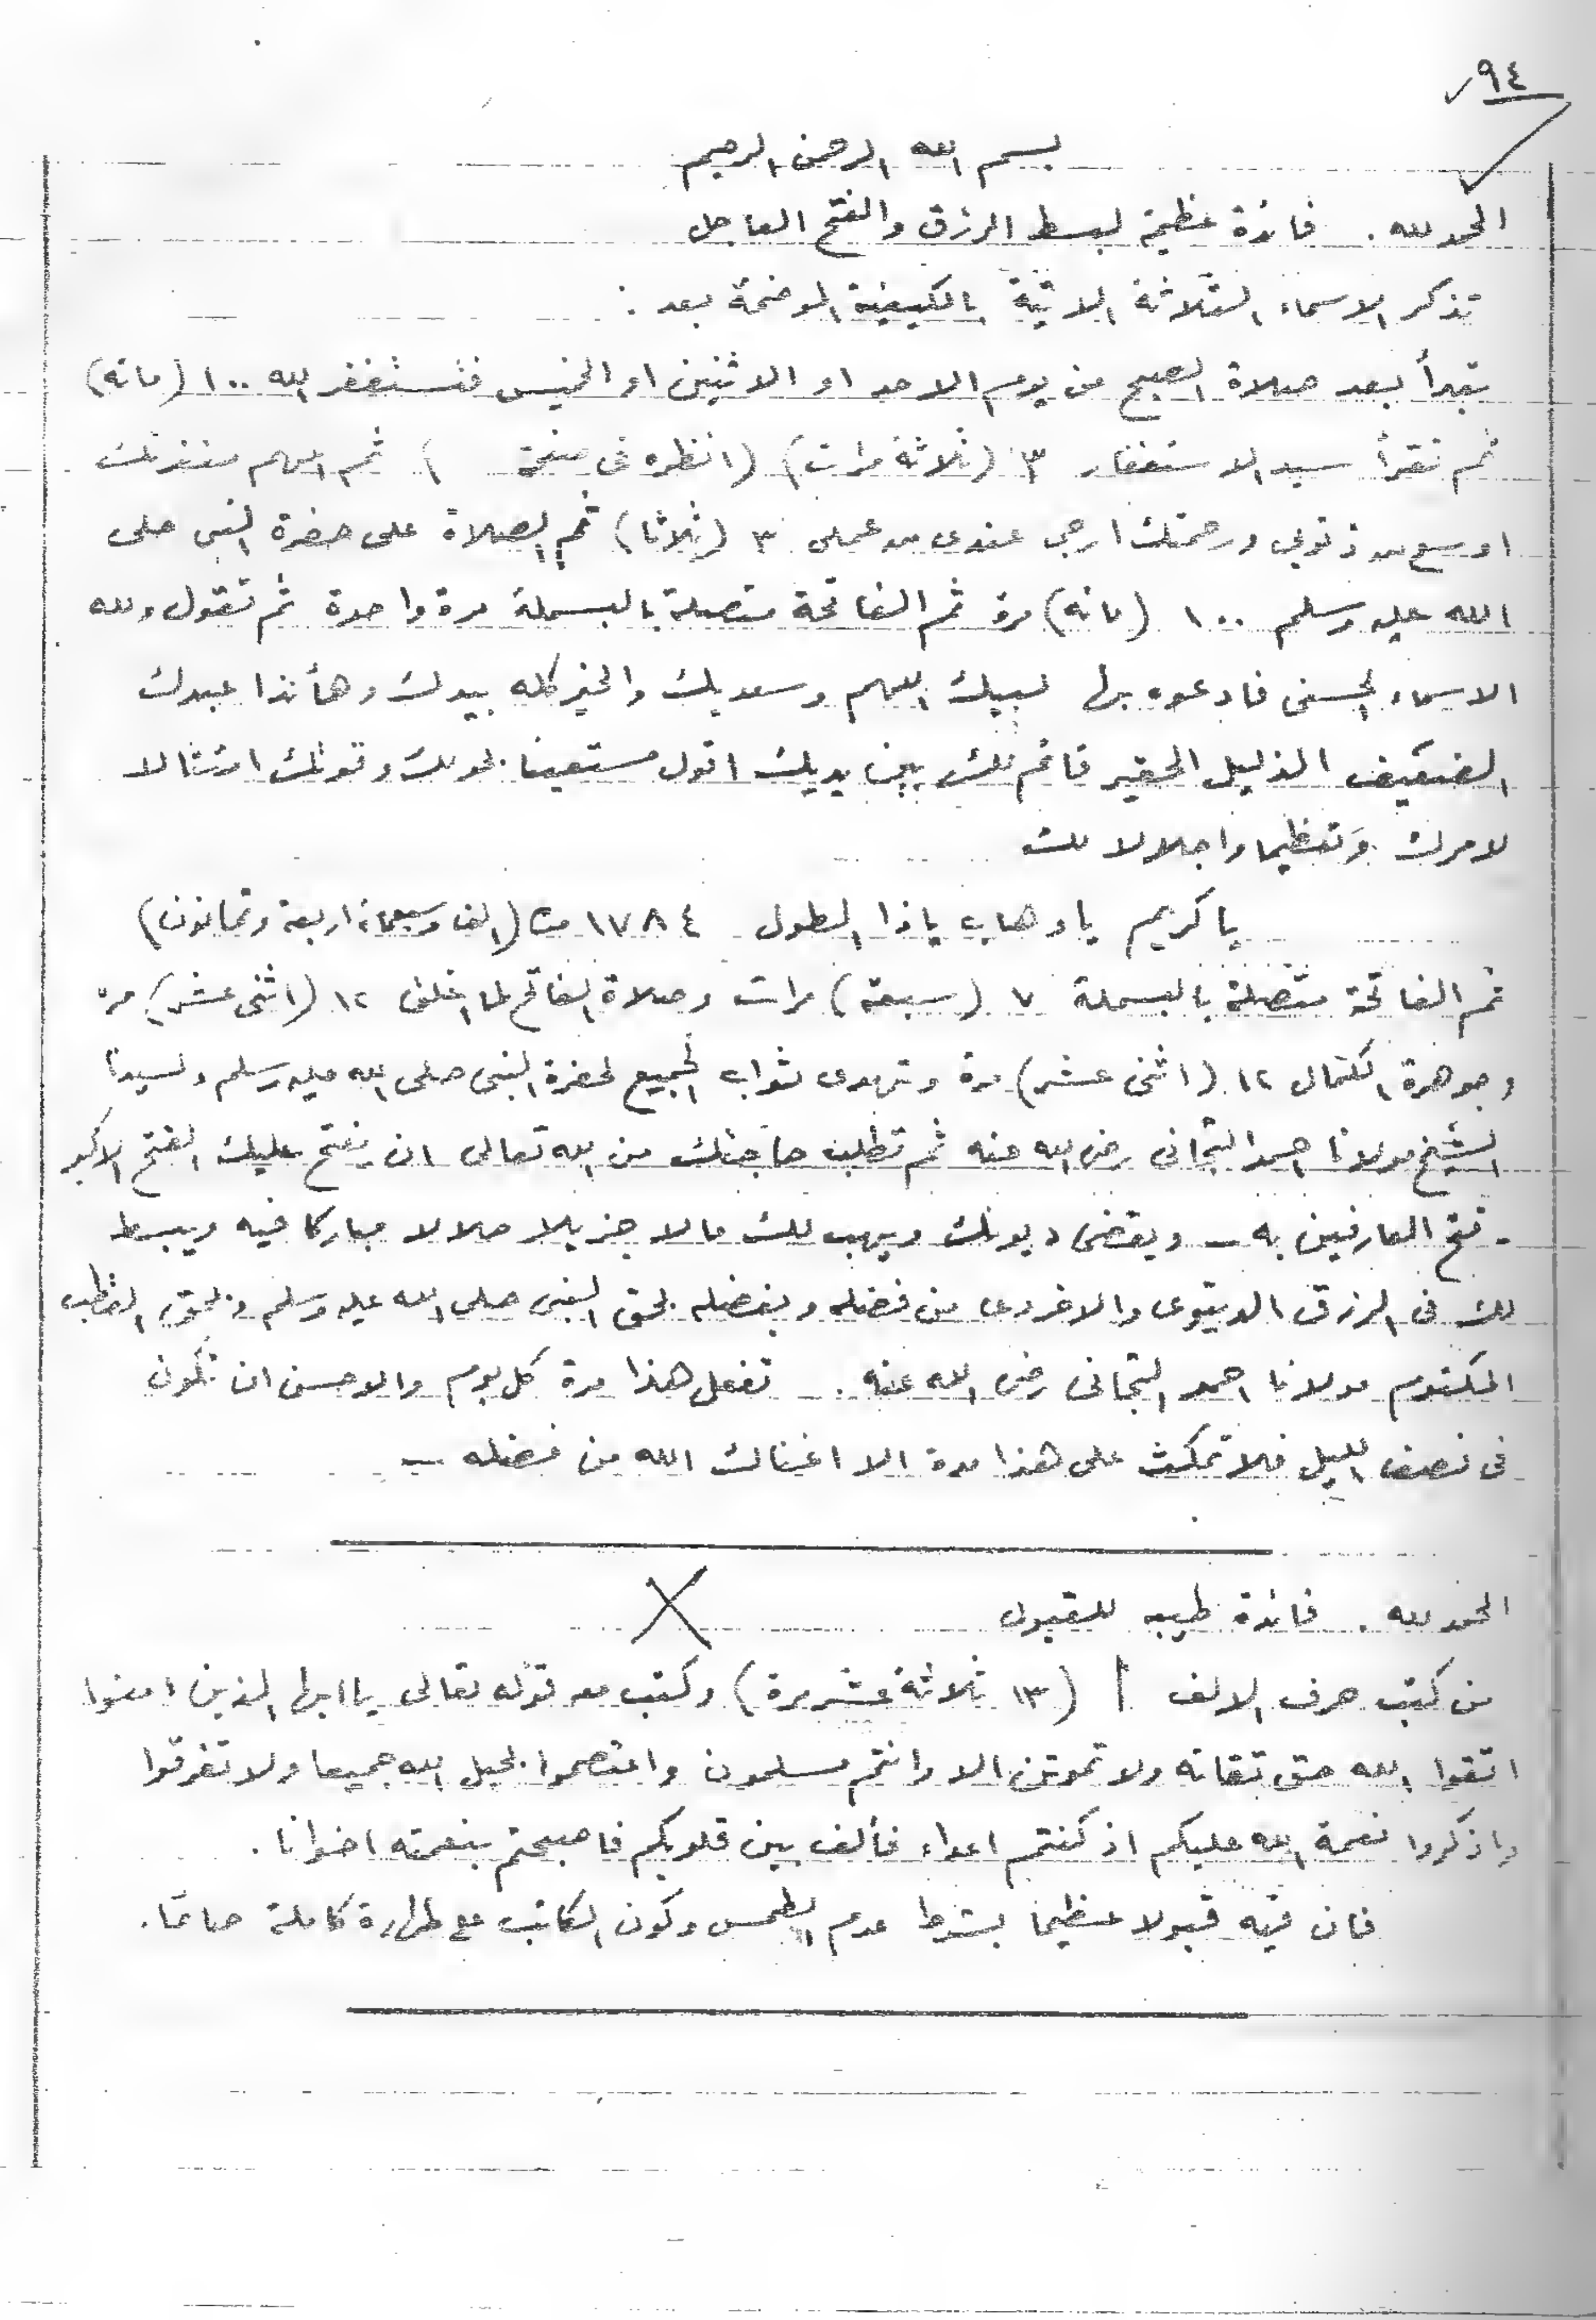 ٩٤
بسم الله الرحمن الرحيم
الحمد لله . فائدة عظيمة لبسط الرزق والفتح العاجل
تذكر الاسماء الثلاثة الاتية بالكيفية الموضحة بعد :
تبدأ بعد صلاة الصبح من يوم الاحد او الاثنين او الخميس فتستغفر الله ١٠٠ (مائه)
ثم تقرأ سيد الاستغفار ٣ (ثلاثة مرات) (انظره في صفحة ) ثم اللهم مغفرتك
اوسع من ذنوبي ورحمتك ارجى عندى من عملى ٣ (ثلاثا) ثم الصلاة على حضرة النبى صلى
الله عليه وسلم ١٠٠ (مائه) مرة ثم الفاتحة متصلة بالبسملة مرة واحدة ثم تقول ولله
الاسماء الحسنى فادعوه بها لبيك اللهم وسعديك والخير كله بيدك وهأنذا عبدك
الضعيف الذليل الحقير قائم لك بين يديك اقول مستعينا بحولك وقوتك امتثالا
لامرك وتعظيما واجلالا لك
ياكريم ياوهاب ياذا الطول ١٧٨٤ مرة (الف وسبعمائة اربعة وثمانون)
ثم الفاتحة متصلة بالبسملة ٧ (سبعة) مرات وصلاة الفاتح لما اغلق ١٢ (اثنى عشر) مرة
وجوهرة الكمال ١٢ (اثنى عشر) مرة وتهدى ثواب الجميع لحضرة النبى صلى الله عليه وسلم ولسيدنا
الشيخ مولانا احمد التجانى رضى الله عنه ثم تطلب حاجتك من الله تعالى ان يفتح عليك الفتح الاكبر
- فتح العارفين به - ويقضى ديونك ويهب لك مالا جزيلا حلالا مباركا فيه ويبسط
لك فى الرزق الدنيوى والاخروى من فضله وبفضله بحق النبى صلى الله عليه وسلم وبحق القطب
المكتوم مولانا احمد التجانى رضى الله عنه . تفعل هذا مرة كل يوم والاحسن ان تكون
فى نصف الليل فلا تمكث على هذا مدة الا اغناك الله من فضله -
الحمد لله . فائدة طيبه للقبول
من كتب حرف الالف ا (١٣ ثلاثة عشر مرة) وكتب معه قوله تعالى ياايها الذين امنوا
اتقوا الله حق تقاته ولا تموتن الا وانتم مسلمون واعتصموا بحبل الله جميعا ولا تفرقوا
واذكروا نعمة الله عليكم اذ كنتم اعداء فألف بين قلوبكم فاصبحتم بنعمته اخوانا .
فان فيه قبولا عظيما بشرط عدم الطمس وكون الكاتب على طهارة كاملة صائما .